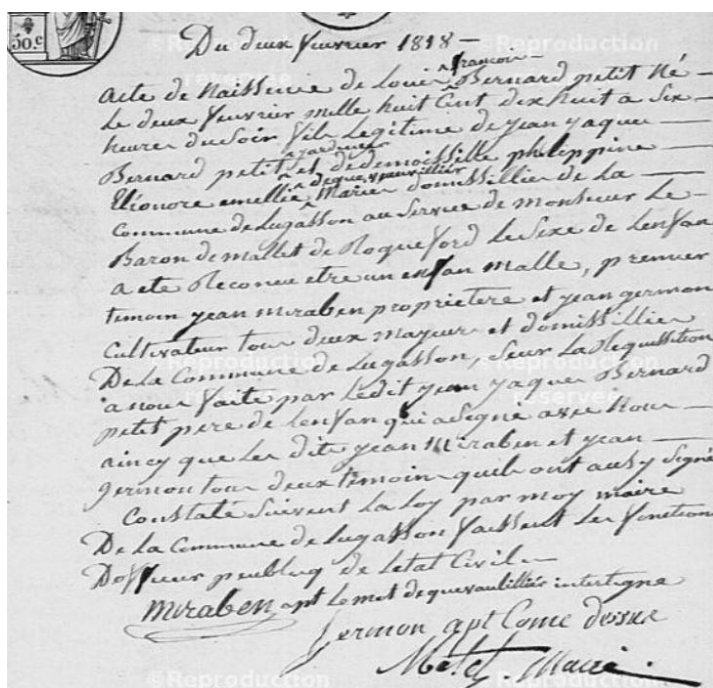 50.c
Du deux fevrier 1818
françois
acte de Naissence de Louis ^ Bernard petit Né
Le deux fevrier mille huit Cent dix huit a Six
heures du Soir fils Legitime de jean jaque
jardinier
Bernard petit ^ et de demoisselle philippine
dequevauvillier
Elionore emellie ^ Marie domissillier de la
Commune de Lugasson au Service de monsieur Le
Baron de mallet de Roqueford Le Sexe de Lenfan
a ete Reconeu etre un enfan malle, premier
temoin jean miraben proprietere et jean germon
Cultivateur tous deux mayeur et domissillier
De La Commune de Lugasson, Seur La Requissition
a nous faite par Ledit jean jaque Bernard
petit pere de Lenfan qui a Signé avec Nous
aincy que Les dits jean Miraben et jean
germon tous deux temoin quil ont ausy Signé
Constaté Suivent La Loy par moy maire
De La Commune de Lugasson faissent Les fonction
Dofficier peubliq de Letat Civil
miraben apt Le mot dequevauvillier interligne
germon apt Come dessue
Maire
©Reproduction
reservée
©Reproduction
reservée
©Reproduction
©Reproduction